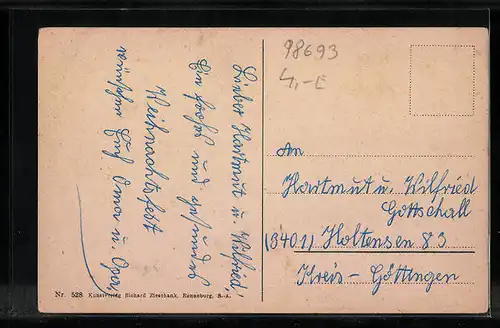 Lieber Hartmut u. Wilfried,
Ein frohes und gesundes
Weihnachtsfest
wünschen Euch Oma u. Opa,
98693
4,-E
An
Hartmut u. Wilfried
Gottschall
(3401) Holtensen 83
Kreis - Göttingen
Nr. 528 Kunstverlag Richard Zieschank, Ronneburg, S.-A.